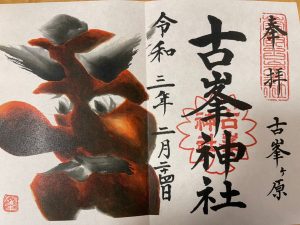 奉拝
古峯ヶ原
古峯神社
令和三年二月二十四日